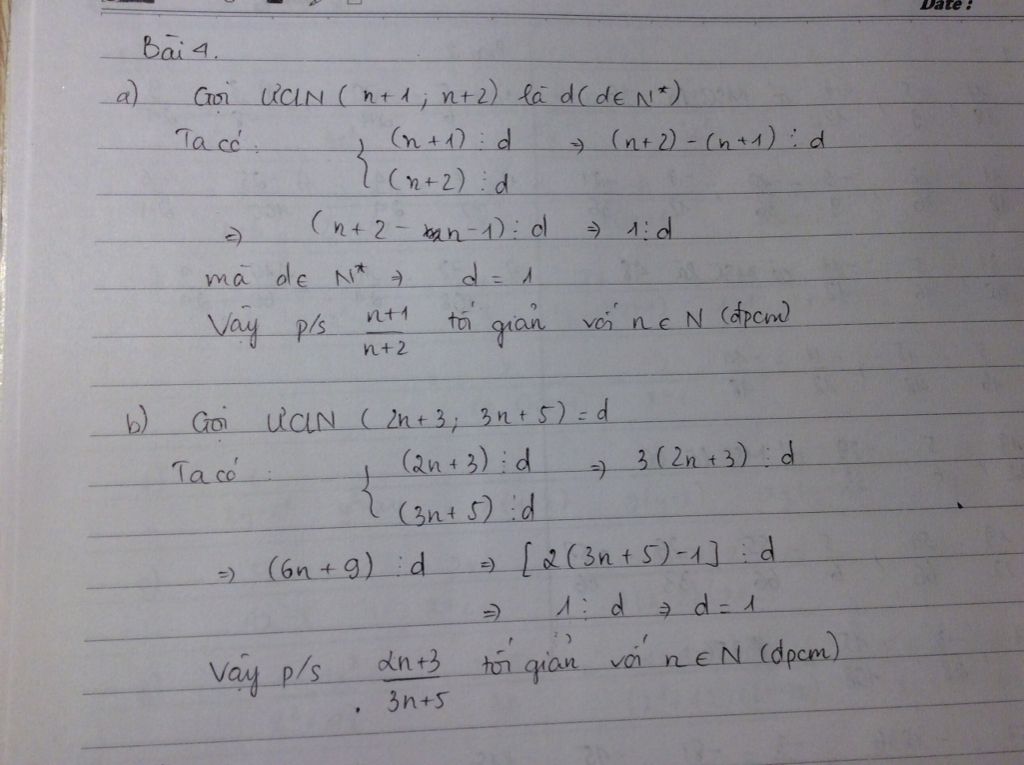 Date :
Bài 4.
a) Gọi ƯCLN ( n+1 ; n+2 ) là d ( d ∈ N* )
Ta có : { (n+1) ⋮ d ⇒ (n+2) - (n+1) ⋮ d
(n+2) ⋮ d
⇒ (n+2 - n - 1) ⋮ d ⇒ 1 ⋮ d
mà d ∈ N* ⇒ d = 1
Vậy p/s n+1/n+2 tối giản với n ∈ N (đpcm)
b) Gọi ƯCLN ( 2n+3 ; 3n+5 ) = d
Ta có : { (2n+3) ⋮ d ⇒ 3(2n+3) ⋮ d
(3n+5) ⋮ d
⇒ (6n+9) ⋮ d ⇒ [2(3n+5)-1] ⋮ d
⇒ 1 ⋮ d ⇒ d = 1
Vậy p/s 2n+3/3n+5 tối giản với n ∈ N (đpcm)